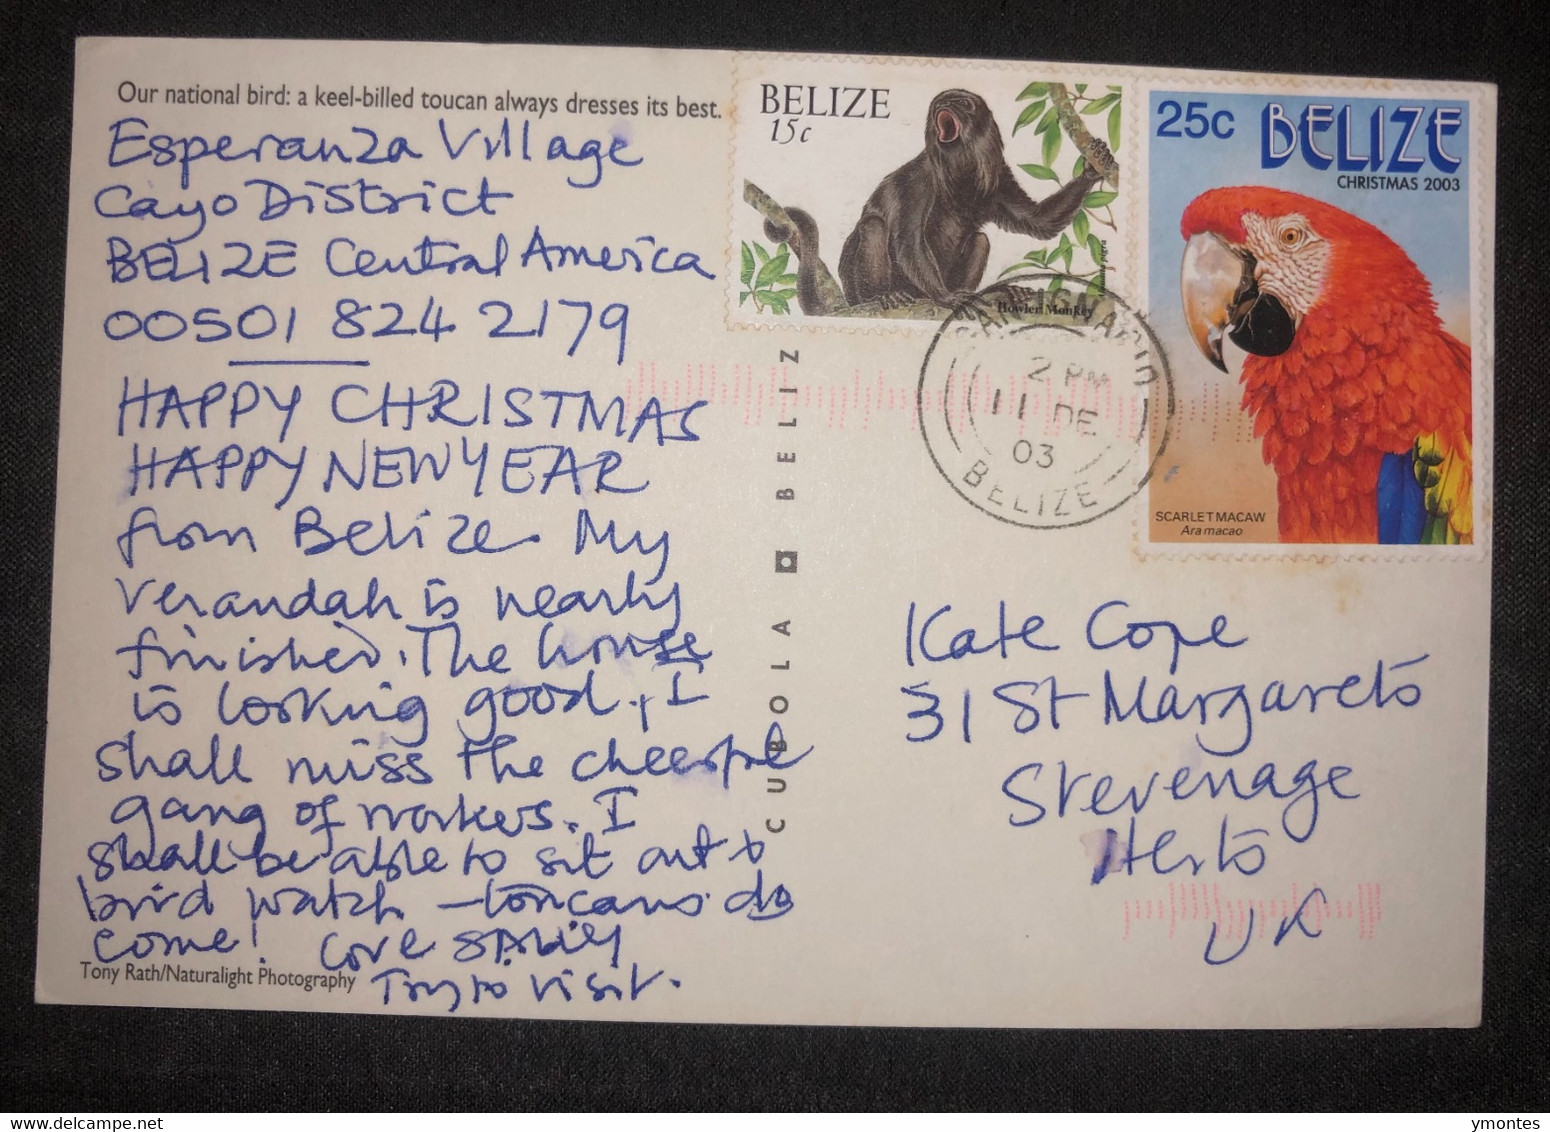 Our national bird: a keel-billed toucan always dresses its best.
Esperanza Village
Cayo District
BELIZE Central America
00501 824 2179
HAPPY CHRISTMAS
HAPPY NEW YEAR
from Belize. My
verandah is nearly
finished. The house
is looking good, I
shall miss the cheerful
gang of workers. I
shall be able to sit out &
bird watch – toucans do
come! Love
Try to visit.
Tony Rath/Naturalight Photography
CUBOLA BELIZ
BELIZE
15c
Howler Monkey
25c BELIZE
CHRISTMAS 2003
SCARLET MACAW
Ara macao
2 PM
11 DE
03
BELIZE
Kate Cope
31 St Margarets
Stevenage
Herts
UK
ymontes